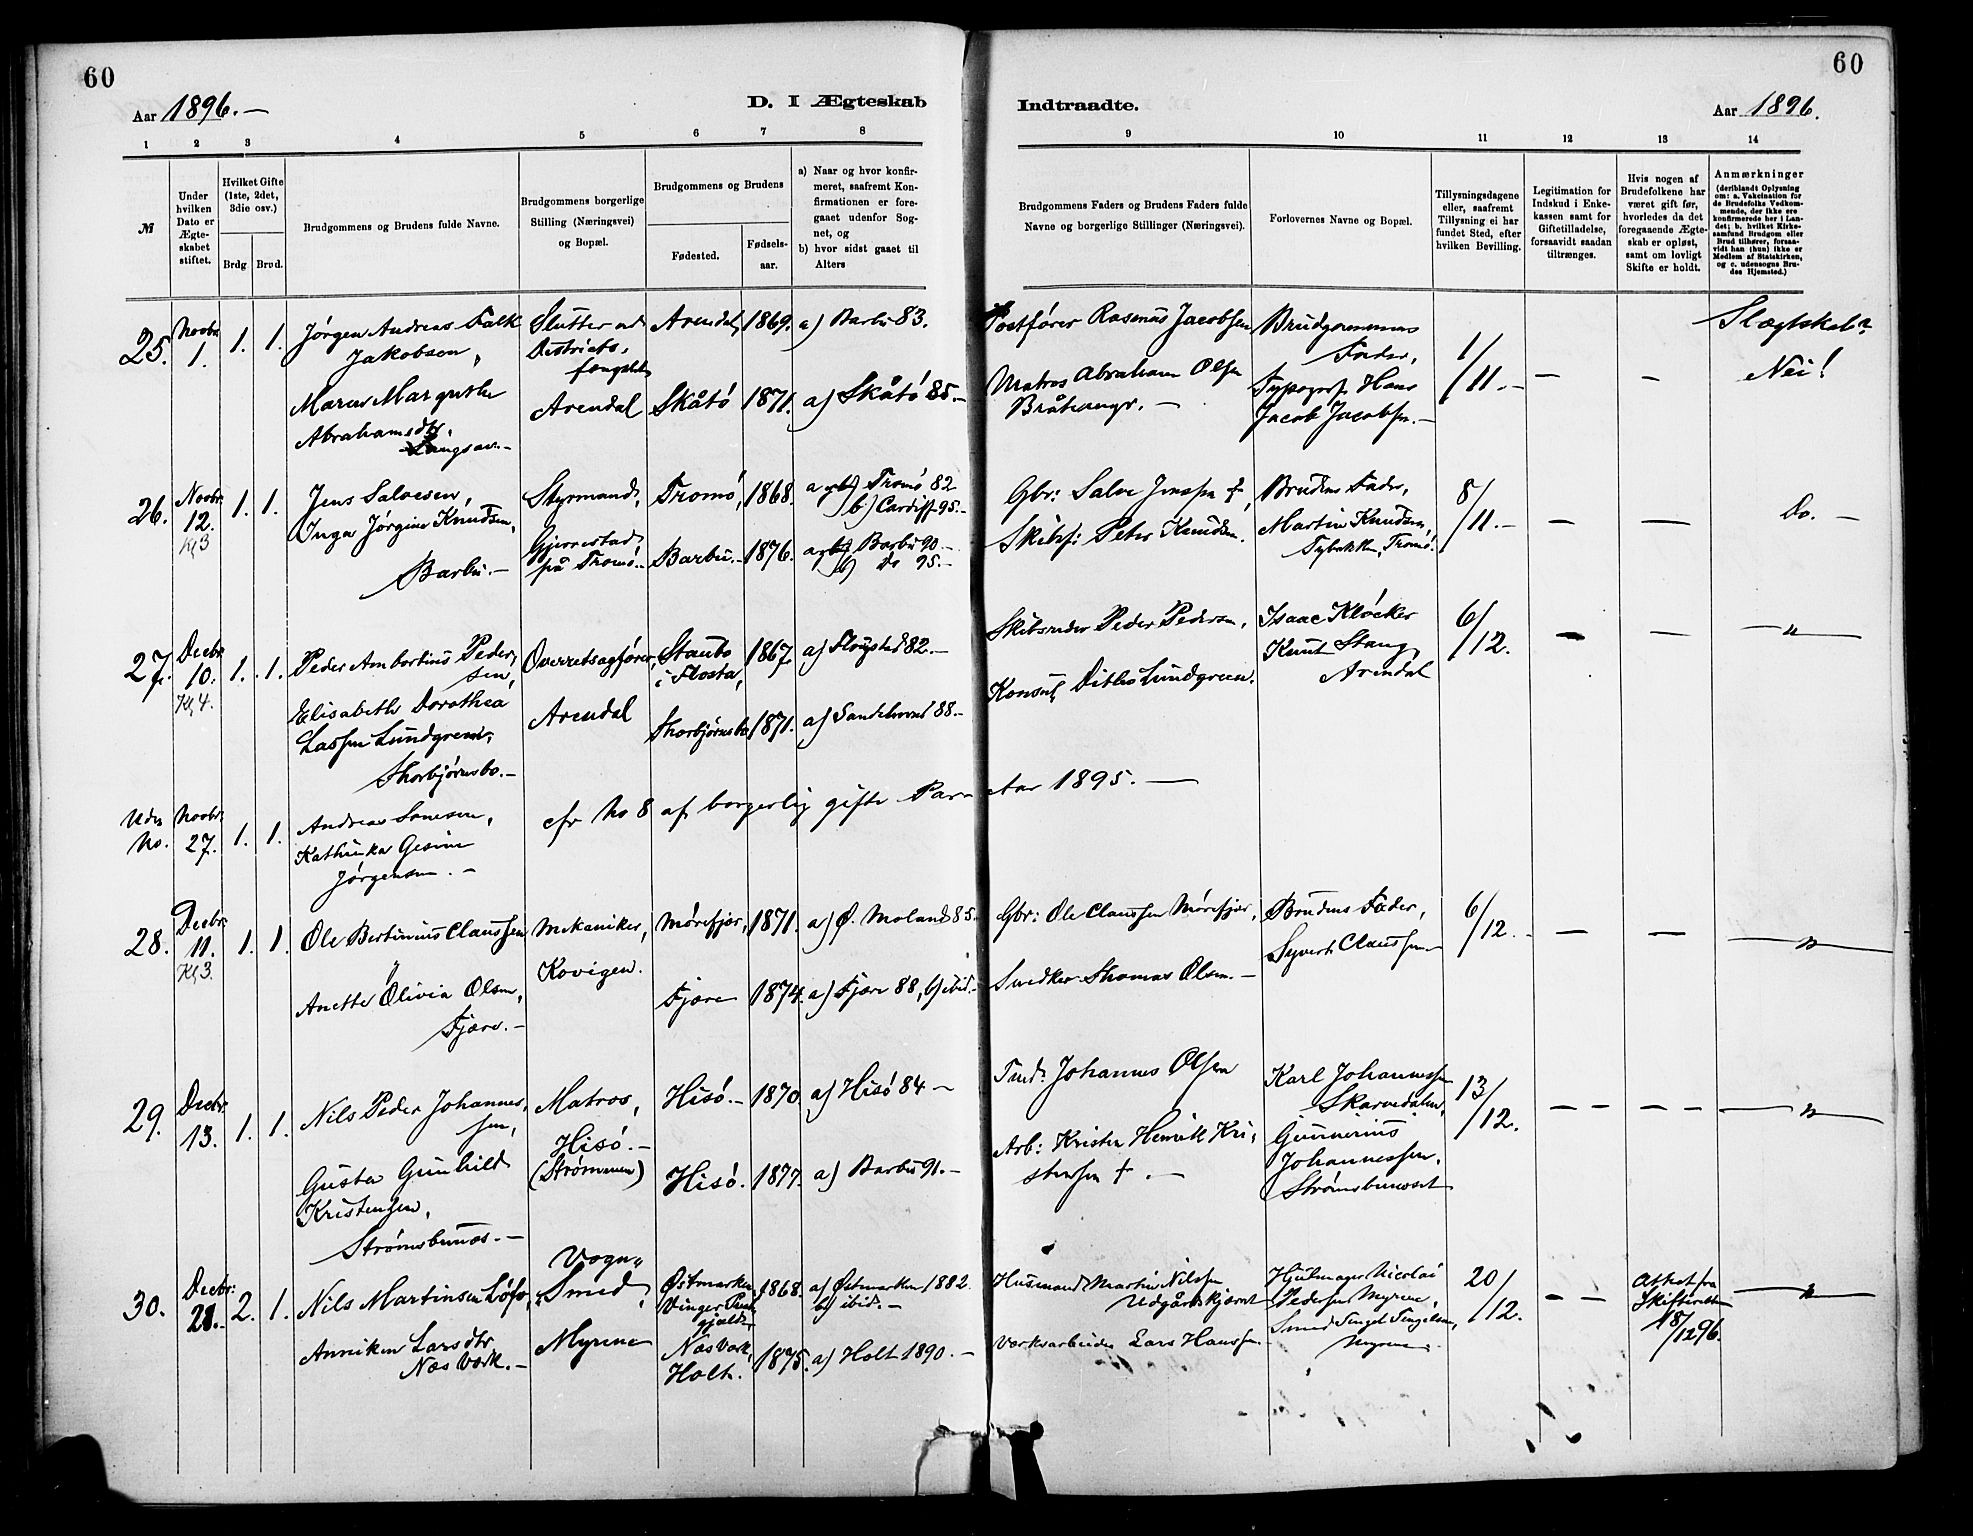 60
60
Aar 1896.-
D. I Ægteskab
Indtraadte.
Aar 1896.
1 2 3 4 5 6 7 8 9 10 11 12 13 14
№
Under hvilken Dato er Ægteskabet stiftet.
Hvilket Gifte (1ste, 2det, 3die osv.)
Brdg
Brud.
Brudgommens og Brudens fulde Navne.
Brudgommens borgerlige Stilling (Næringsvei) og Bopæl.
Brudgommens og Brudens
Fødested.
Fødselsaar.
a) Naar og hvor konfirmeret, saafremt Konfirmationen er foregaaet udenfor Sognet, og
b) hvor sidst gaaet til Alters
Brudgommens Faders og Brudens Faders fulde Navne og borgerlige Stillinger (Næringsvei).
Forlovernes Navne og Bopæl.
Tillysningsdagene eller, saafremt Tillysning ei har fundet Sted, efter hvilken Bevilling.
Legitimation for Indskud i Enkekassen samt for Giftetilladelse, forsaavidt saadan tiltrænges.
Hvis nogen af Brudefolkene har været gift før, hvorledes da det foregaaende Ægteskab er opløst, samt om lovligt Skifte er holdt.
Anmærkninger
(deriblandt Oplysning om: a. Vakcination for de Brudefolks Vedkommende, der ikke ere konfirmerede her i Landet; b. hvilket Kirkesamfund Brudgom eller Brud tilhører, forsaavidt han (hun) ikke er Medlem af Statskirken, og c. udensogns Brudes Hjemsted.)
25. Novbr 1. 1. 1.
Jørgen Andreas Falk
Jakobsen,
Maren Margrethe
Abrahamsdtr.
Langsæv.-
Slutter ved
Districts-
fængslet
Arendal
Arendal, 1869. a) Barbu 83.
Skåtö 1871. a) Skåtö 85.-
Postfører Rasmus Jacobsen
Matros Abraham Olsen
Bråtangr.-
Brudgommens
Fader,
Typograf Hans
Jacob Jacobsen.-
1/11.-
Slægtskab?
Nei!
26. Novbr. 12. Kl 3 1. 1.
Jens Salvesen,
Inga Jørgine Knudsen,
Barbu.-
Styrmand,
Gjerrestad
på Tromö.-
Tromö, 1868. a og b) Tromö 82
b) Cardiff 95.-
Barbu.- 1876. a og b) Barbu 90.-
b) Do 95.-
Gbr: Salve Jensen †,
Skibsf: Peter Knudsen.
Brudens Fader,
Martin Knudsen,
Tybakken, Tromö.
8/11.-
Do.-
27. Decbr 10. Kl 4. 1. 1.
Peder Ambortius Peder-
sen,
Elisabeth Dorothea
Lassen Lundgreen,
Thorbjørnsbo.-
Overretsagfører,
Arendal
Staubo
i Flosta, 1867. a) Flosta 82.-
Thorbjørnsbo 1871. a) Sandelsund 88.-
Skibsreder Peder Pedersen,
Konsul Ditlev Lundgreen.
Isaac Kløcker
Knut Stang,
Arendal
6/12.
"
Uden No. Novbr. 27. 1. 1.
Andreas Sonesen,
Kathinka Gesine
Jørgensen.-
cfr No 8 af borgerlig gifte Par Aar 1895.-
28. Decbr. 11. Kl 3. 1. 1
Ole Bertinius Claussen
Anette Olivia Olsen,
Fjære.-
Mekaniker,
Kovigen.
Mørefjær, 1871. a) Ö. Moland 85.-
Fjære 1874. a) Fjære 88, b) ibid.-
Gbr: Ole Claussen Mørefjær,
Snedker Thomas Olsen.-
Brudens Fader,
Syvert Claussen
6/12.-
"
29. Decbr. 13. 1. 1.
Nils Peder Johannes-
sen,
Gusta Gunhild
Kristensen,
Strømsbunæs.-
Matros,
Hisö.-
(Strømmen)
Hisö.- 1870. a) Hisö 84-
Hisö. 1877. a) Barbu 91.-
Tmd. Johannes Olsen
Arb: Krister Henrik Kri-
stensen †.-
Karl Johannessen
Skarvedalen,
Gunnerius
Johannessen,
13/12.
"
30. Decbr: 21.- 2. 1.
Nils Martinsen Løfs,
Anniken Larsdtr
Næs Værk.-
Vogn-
Smed,
Myrene
Østmarken
Vinger Præste-
gjeld 1868. a) Østmarken 1882.
b) ibid.-
Næs Værk,
Holt. 1875. a) Holt 1890.-
Husmand Martin Nilssen
Udgårdskjærnet
Værksarbeider Lars Hanssen
Hjulmager Nicolai
Pedersen Myrene,
Smed Tengel Tengelsen,
Myrene.
20/12.
Attest fra
Skifteretten
18/12 96.
"